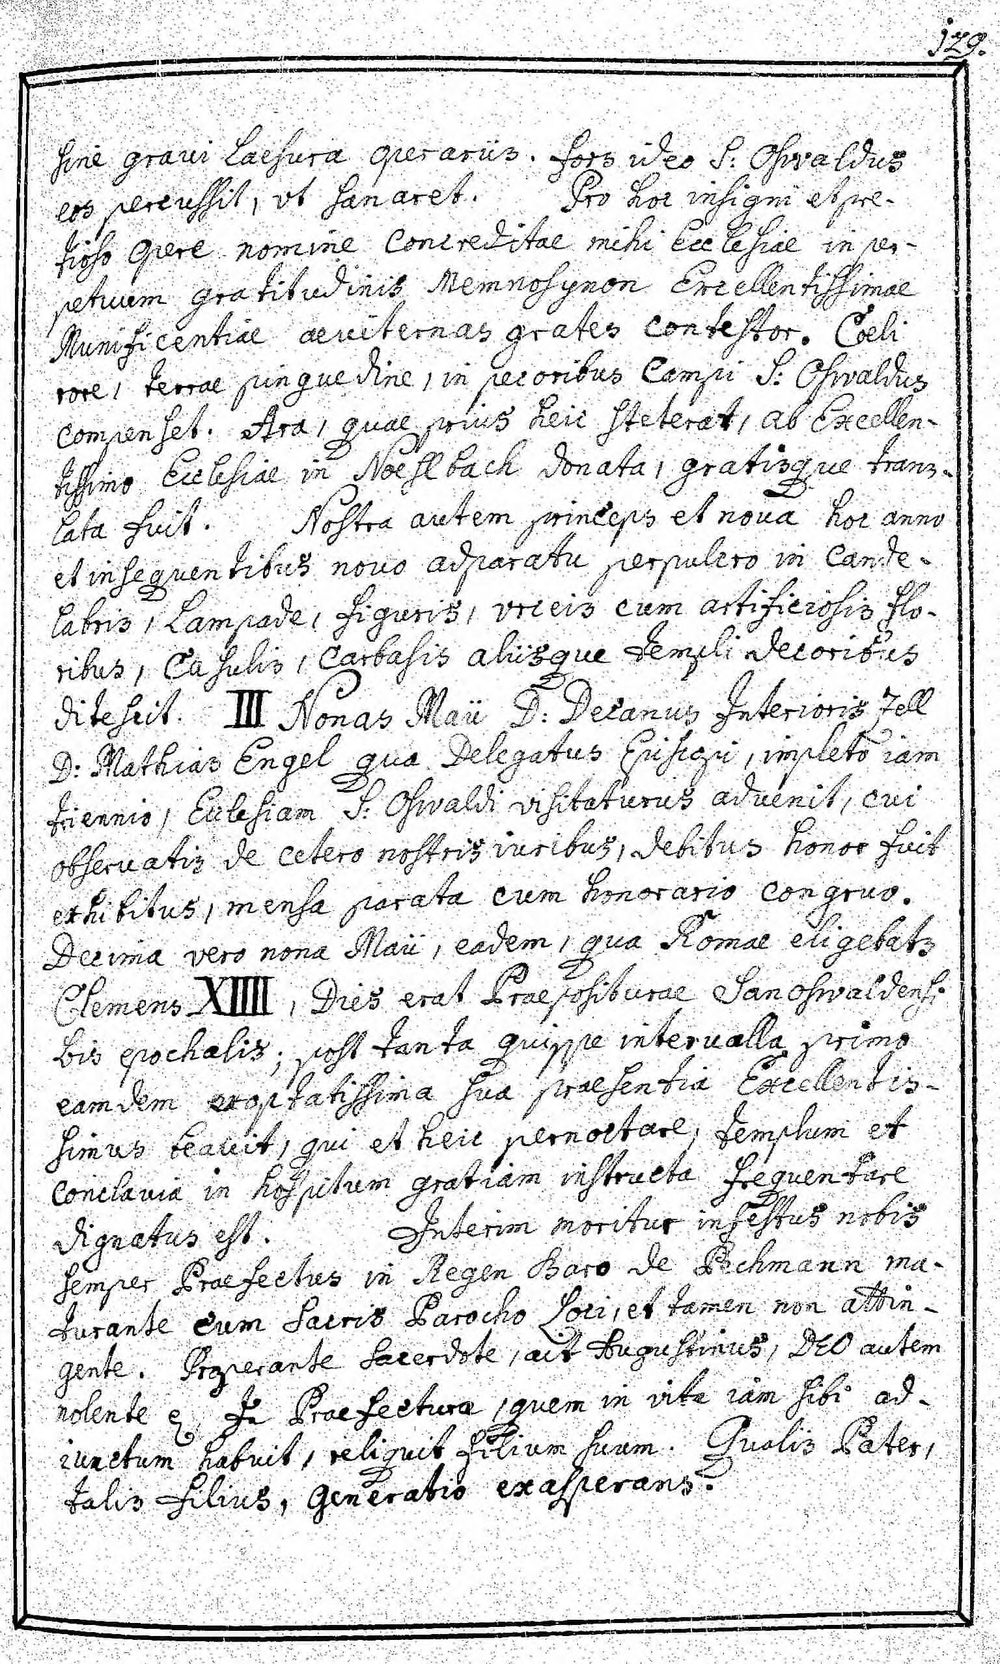 129.
sine graui Laesura operariis. fors ideo S: Oswaldus
eos percussit, vt sanaret. Pro hoc insigni et pre-
tioso opere nomine Concreditae mihi Ecclesiae in per-
petuum gratitudinis Mnemosynon Excellentissimae
Munificentiae aeuiternas grates contestor. Coeli
rore, terrae pinguedine, in pecoribus Campi S: Oswaldus
compenset. Ara, quae prius heic steterat, ab Excellen-
tissimo Ecclesiae in Noeslbach donata, gratisque trans-
lata fuit. Nostra autem princeps et noua hoc anno
et insequentibus nouo adparatu perpulcro in Cande-
labris, Lampade, figuris, vrceis cum artificiosis flo-
ribus, Casulis, Carbasis aliisque templi decoribus
ditescit. III Nonas Maii D: Decanus Interioris Zell
D: Mathias Engel qua Delegatus Episcopi, impleto iam
triennio, Ecclesiam S: Oswaldi visitaturus aduenit, cui
obseruatis de cetero nostris iuribus, debitus honor fuit
exhibitus, mensa parata cum honorario congruo.
Decima vero nona Maii, eadem, qua Romae eligebatr
Clemens XIIII, Dies erat Praepositurae Sanoswaldensi
bis epochalis; post tanta quippe interualla primo
eamdem exoptatissima sua praesentia Excellentis-
simus beauit, qui et heic pernoctare, templum et
conclauia in hospitum gratiam instructa frequentare
dignatus est. Interim moritur infestus nobis
semper Praefectus in Regen Baro de Pechmann ma-
turante cum Sacris Parocho Loci, et tamen non attin-
gente. Properante Sacerdote, ait Augustinus, DEO autem
nolente In Praefectura, quem in vita iam sibi ad-
iunctum habuit, reliquit filium suum. Qualis Pater,
talis filius, Generatio exasperans.